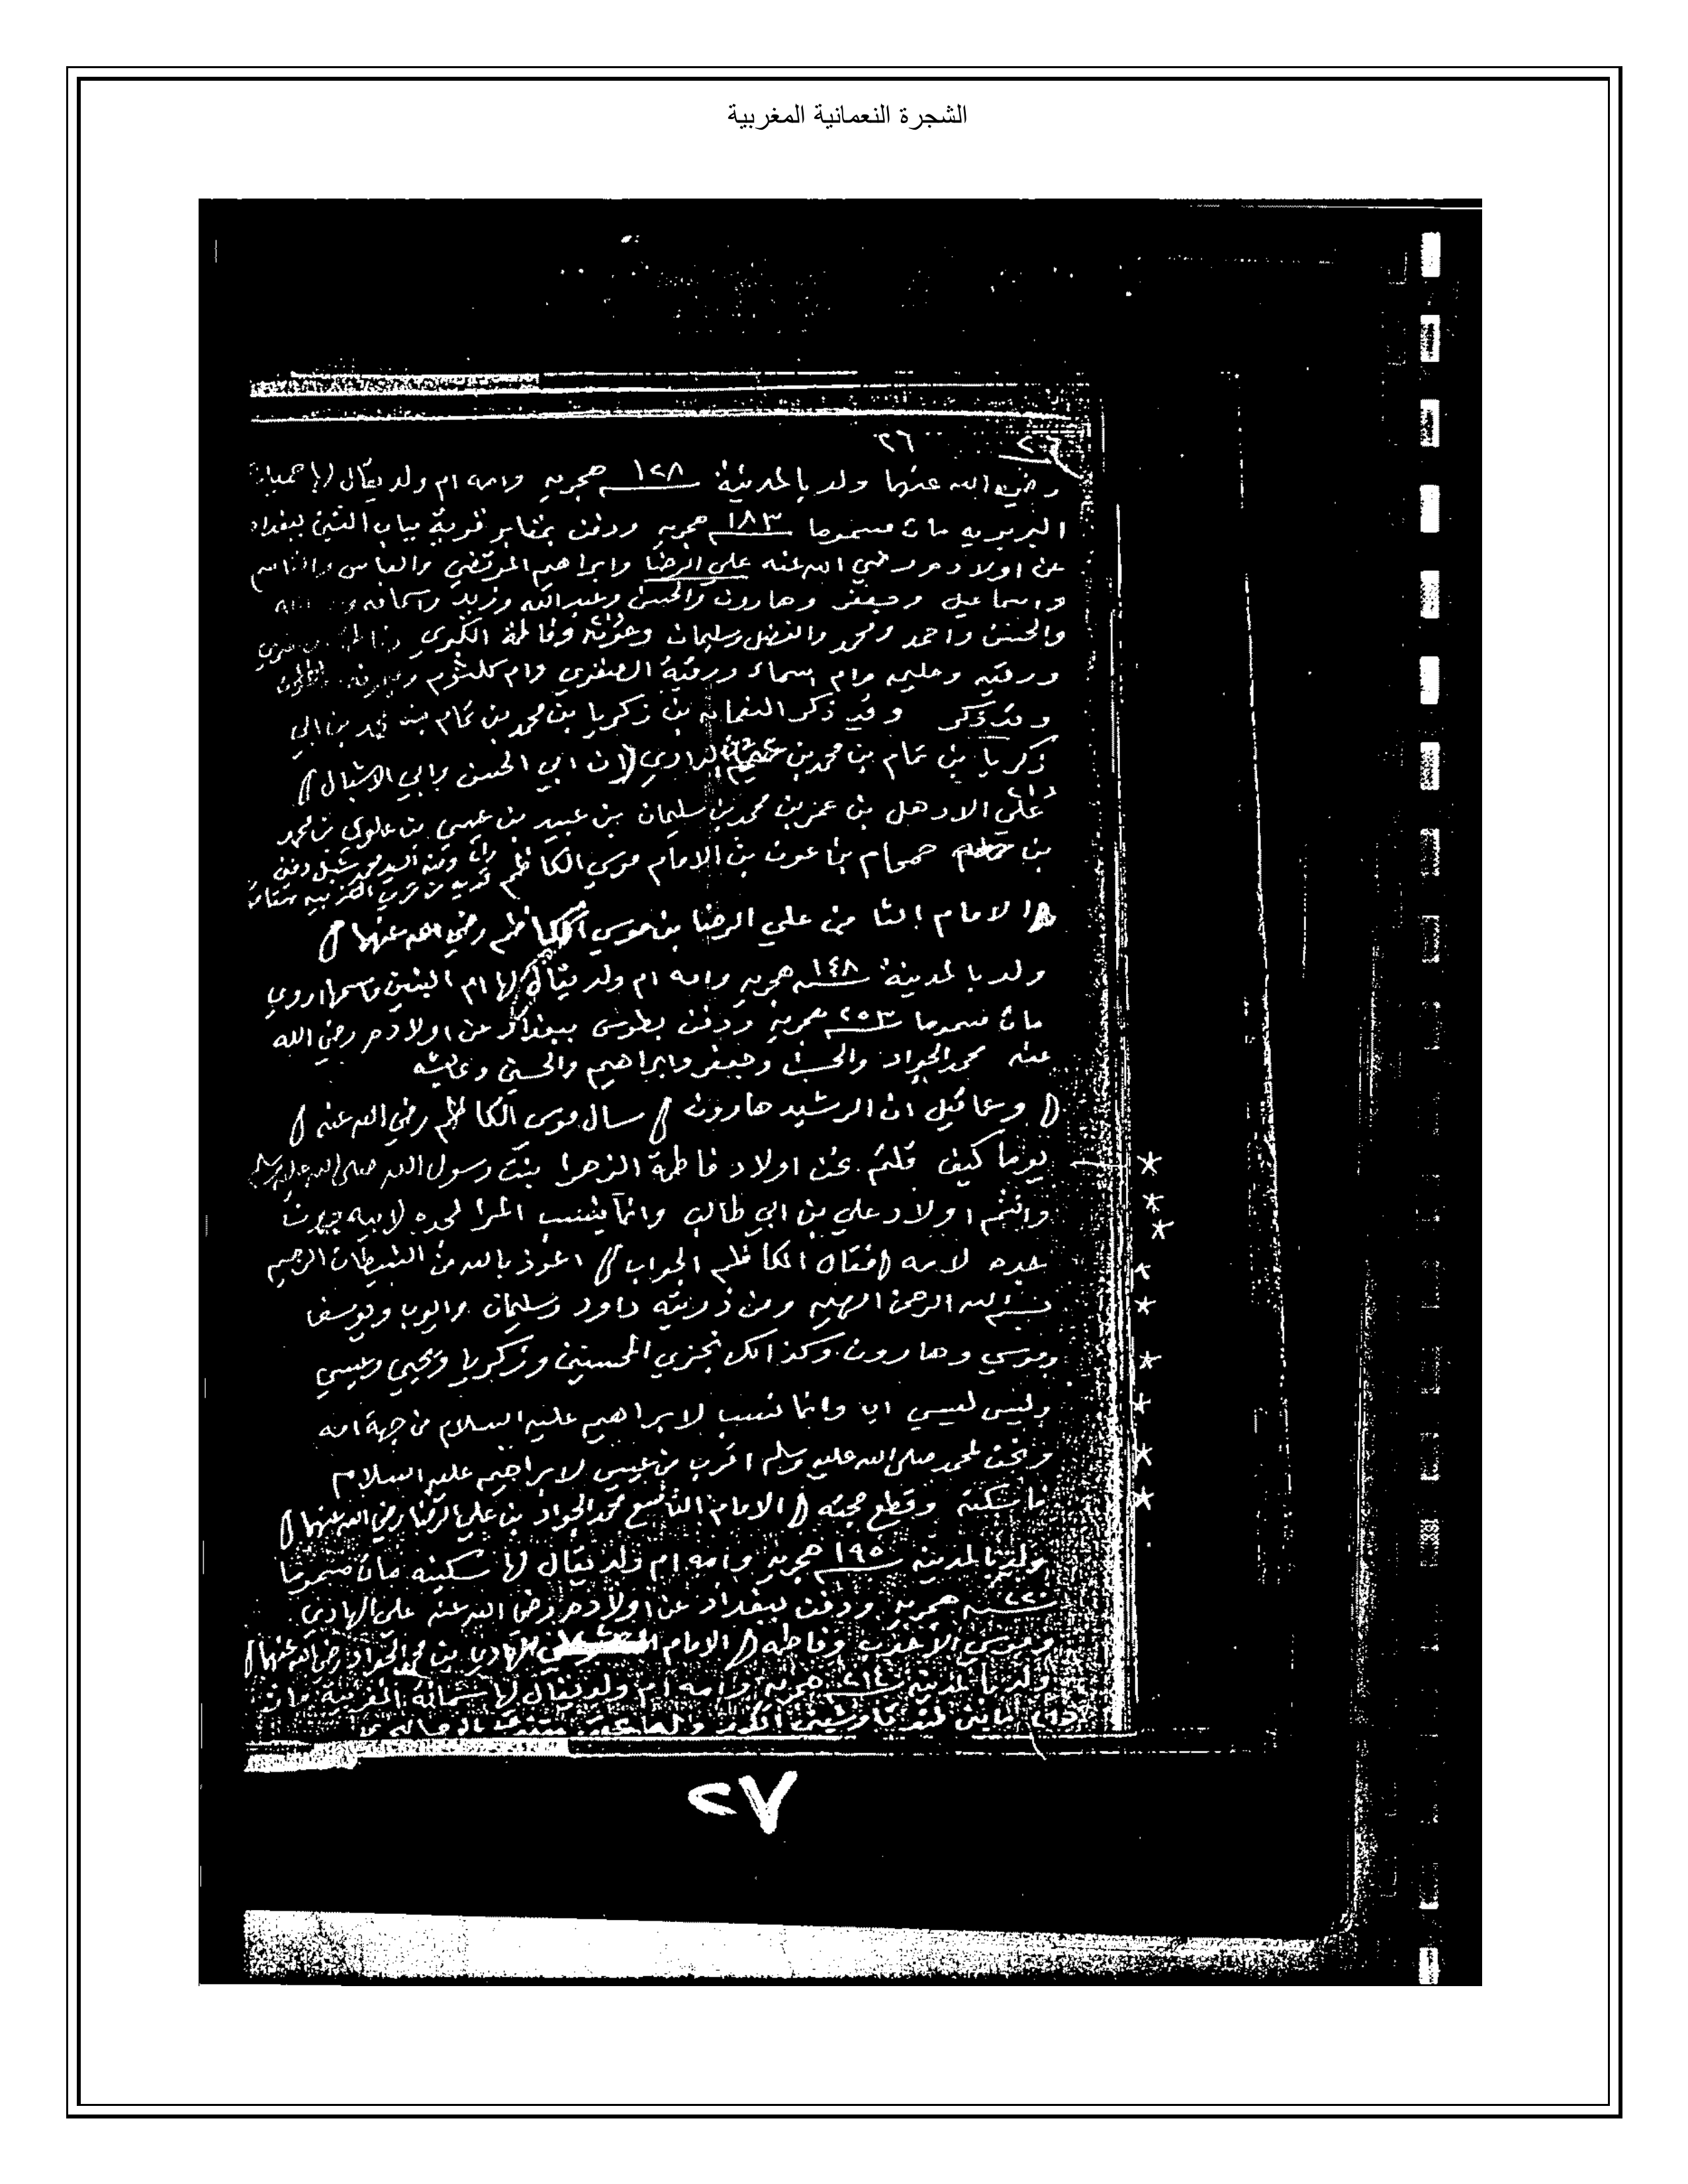 الشجرة النعمانية المغربية
٢٦ ٢٦
رضي الله عنها ولد بالمدينة سنة ١٢٨ هجريه وامه ام ولد يقال لها
البربريه مات مسموما سنة ١٨٣ هجريه ودفن بمقابر قريبة بباب التين ببغداد
عن اولاده رضي الله عنه علي الرضا وابراهيم المرتضي والعباس والقاسم
واسماعيل وجعفر وهارون والحسن وعبدالله وزيد
والحسن واحمد ومحمد والفضل وسليمان وفاطمة الكبري
ورقيه وحليمه وام اسماء ورقية الصغري وام كلثوم
وقد ذكر النعمان بن زكريا بن محمد بن تمام بن محمد بن ابي
زكريا بن تمام بن محمد بن ان ابي الحسن وابي الاشبال
علي الاهدل بن عمر بن محمد بن سليمان بن عبيد بن عيسي بن علوي بن محمد
بن حمحام بن عون بن الامام موسي الكاظم
الامام الثامن علي الرضا بن موسي الكاظم رضي الله عنهما
ولد بالمدينة سنة ١٤٨ هجريه وامه ام ولد يقال لها ام البنين واسمها اروي
مات مسموما سنة ٢٥٣ هجرية ودفن بطوس ببغداد عن اولاده رضي الله
عنه محمد الجواد والحسن وجعفر وابراهيم والحسين وعائشه
ومما قيل ان الرشيد هارون سال موسي الكاظم رضي الله عنه
يوما كيف قلتم نحن اولاد فاطمة الزهرا بنت رسول الله صلى الله عليه وسلم
وانتم اولاد علي بن ابي طالب وانما ينسب المرا لجده لابيه دون
جده لامه فقال الكاظم الجواب اعوذ بالله من الشيطان الرجيم
بسم الله الرحمن الرحيم ومن ذريته داود وسليمان وايوب ويوسف
وموسي وهارون وكذالك نجزي المحسنين وزكريا ويحيي وعيسي
وليس لعيسي اب وانما نسب لابراهيم عليه السلام من جهة امه
ونحن لمحمد صلى الله عليه وسلم اقرب من عيسي لابراهيم عليه السلام
فاسكته وقطع حجته الامام التاسع محمد الجواد بن علي الرضا رضي الله عنهما
ولد بالمدينه سنة ١٩٥ هجريه وامه ام ولد يقال لها سكينه مات مسموما
سنة ٢٢٠ هجريه ودفن ببغداد عن اولاده رضي الله عنه علي الهادي
وموسي وفاطمه الامام الهادي بن محمد الجواد رضي الله عنهما
ولد بالمدينة سنة ٢١٤ هجرية وامه ام ولد يقال لها سمانة المغربية
٢٧